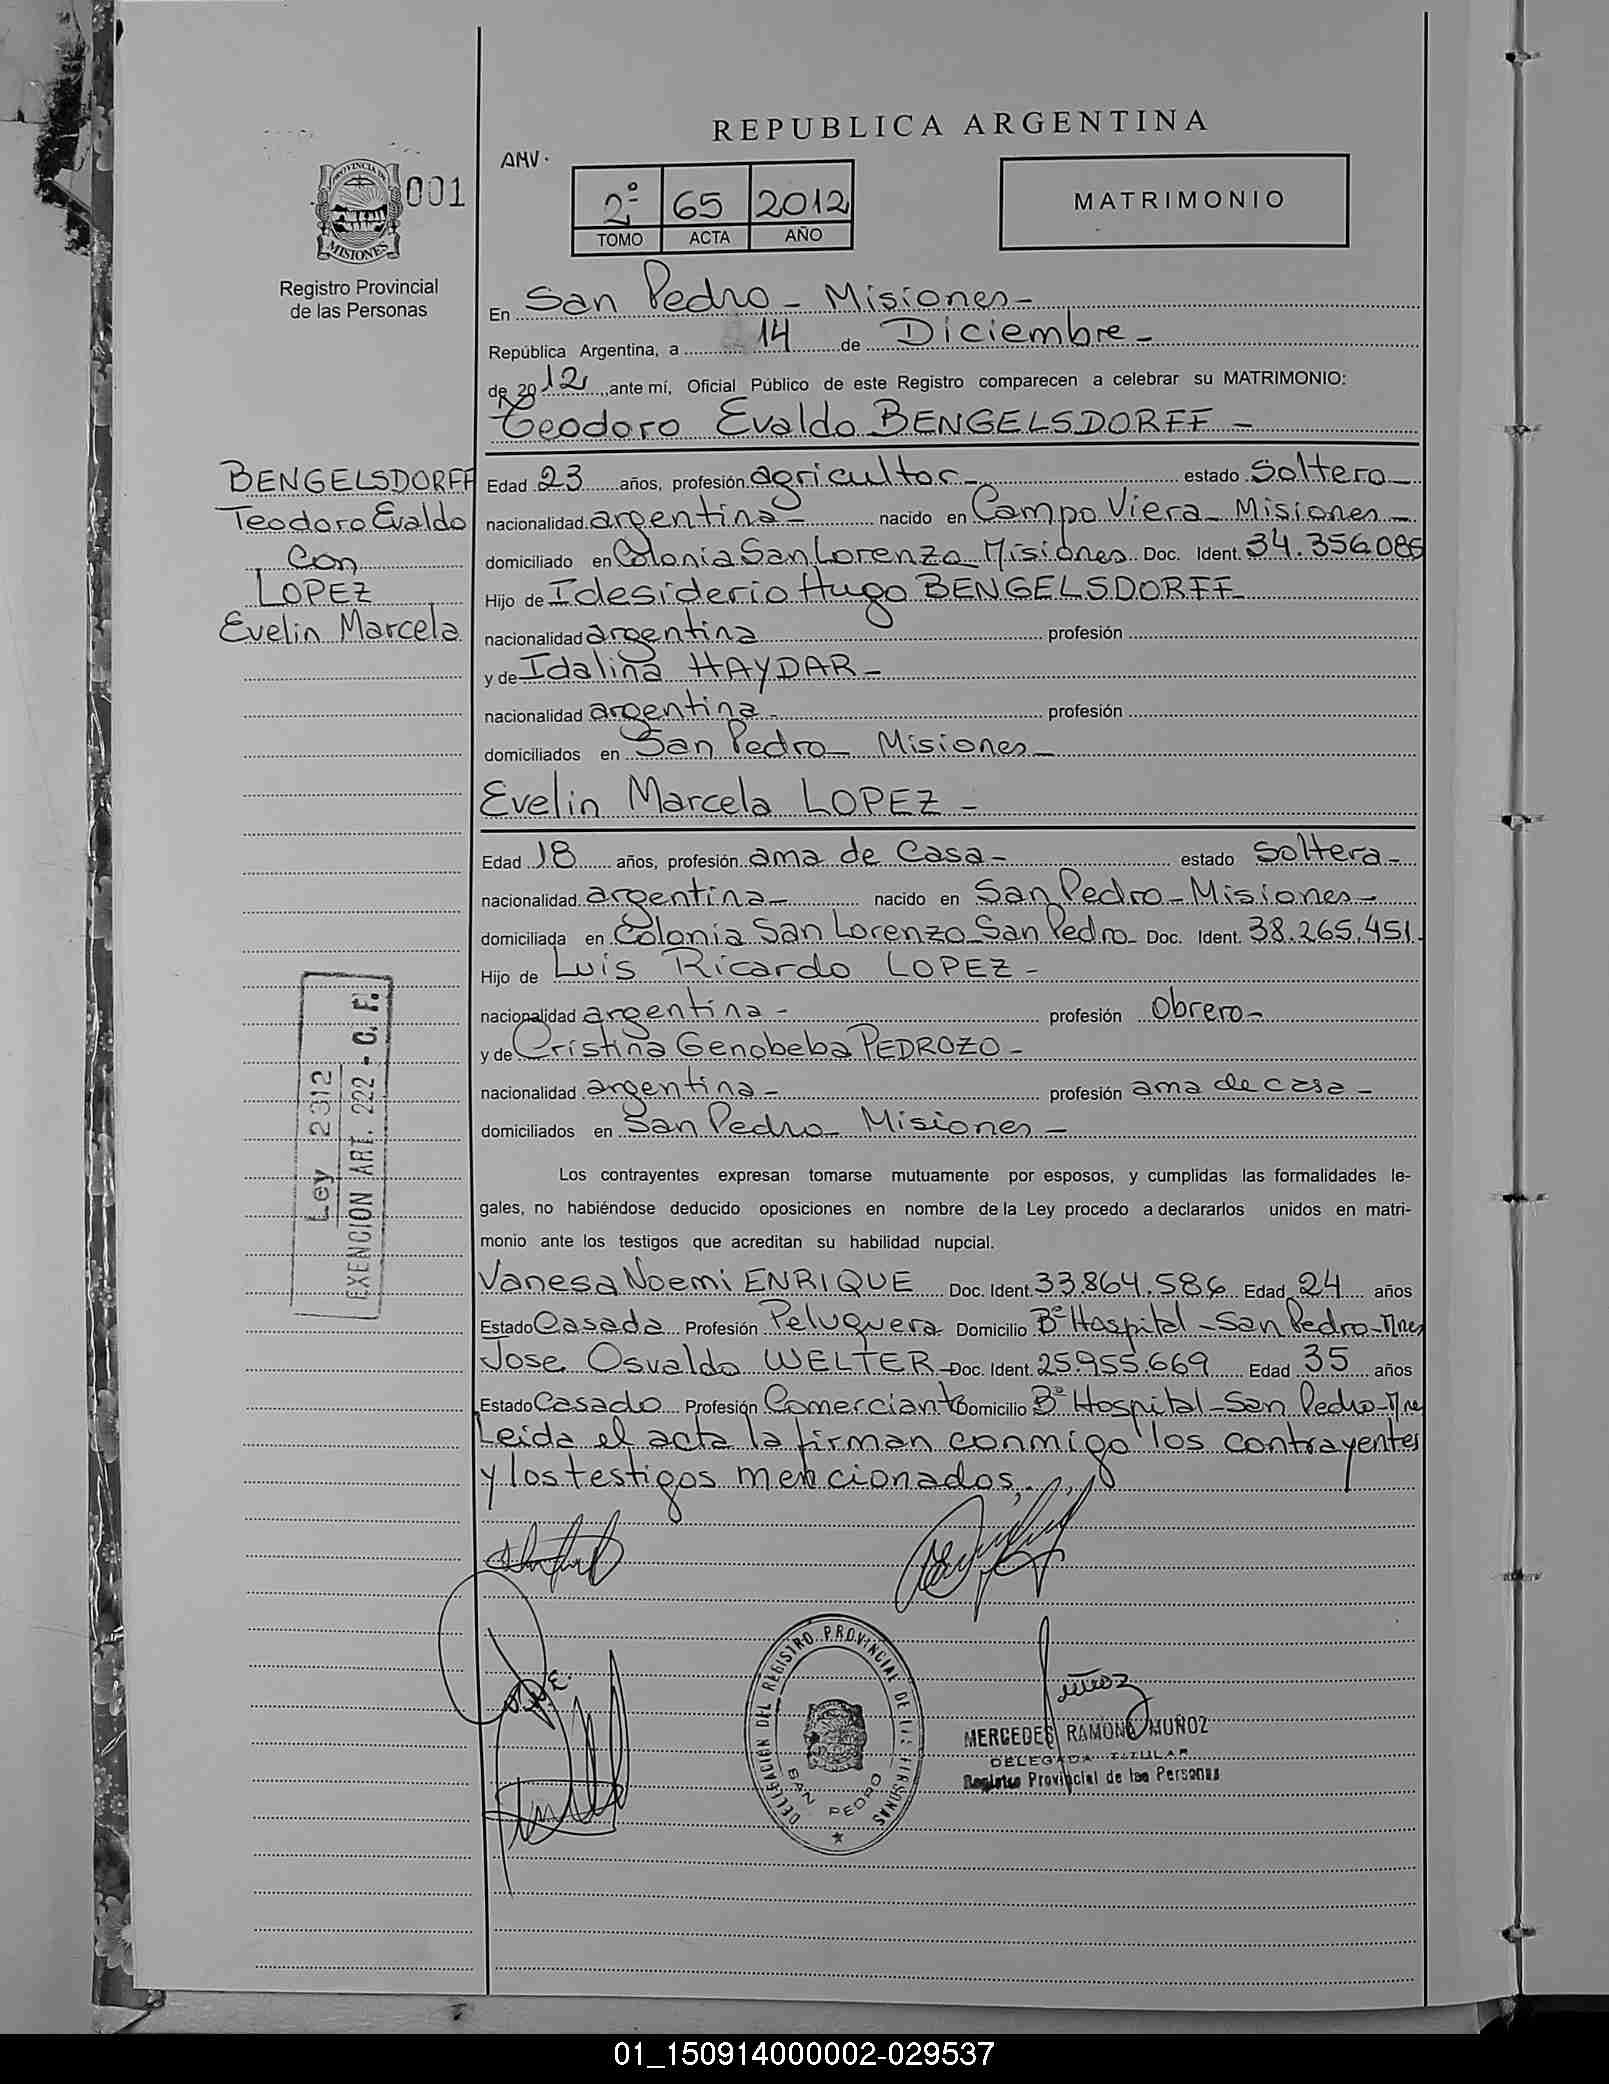 REPUBLICA ARGENTINA
AMV.
PROVINCIA DE
MISIONES
001
Registro Provincial
de las Personas
2º 65 2012
TOMO ACTA AÑO
MATRIMONIO
En San Pedro - Misiones -
República Argentina, a 14 de Diciembre -
de 2012, ante mí, Oficial Público de este Registro comparecen a celebrar su MATRIMONIO:
Teodoro Evaldo BENGELSDORFF -
BENGELSDORFF
Teodoro Evaldo
con
LOPEZ
Evelin Marcela
Edad 23 años, profesión agricultor - estado Soltero -
nacionalidad argentina - nacido en Campo Viera - Misiones -
domiciliado en Colonia San Lorenzo Misiones Doc. Ident. 34.356.086
Hijo de Idesiderio Hugo BENGELSDORFF -
nacionalidad argentina profesión
y de Idalina HAYDAR -
nacionalidad argentina - profesión
domiciliados en San Pedro - Misiones -
Evelin Marcela LOPEZ -
Edad 18 años, profesión ama de casa - estado Soltera -
nacionalidad argentina - nacido en San Pedro - Misiones -
domiciliada en Colonia San Lorenzo San Pedro - Doc. Ident. 38.265.451.
Hijo de Luis Ricardo LOPEZ -
nacionalidad argentina - profesión Obrero -
y de Cristina Genobeba PEDROZO -
nacionalidad argentina - profesión ama de casa -
domiciliados en San Pedro - Misiones -
Ley 2312
EXENCION ART. 222 - C. F.
Los contrayentes expresan tomarse mutuamente por esposos, y cumplidas las formalidades le-
gales, no habiéndose deducido oposiciones en nombre de la Ley procedo a declararlos unidos en matri-
monio ante los testigos que acreditan su habilidad nupcial.
Vanesa Noemi ENRIQUE Doc. Ident. 33.864.586 Edad 24 años
Estado Casada Profesión Peluquera Domicilio Bº Hospital - San Pedro - Mnes
Jose Osvaldo WELTER - Doc. Ident. 25.955.669 Edad 35 años
Estado Casado Profesión Comerciante Domicilio Bº Hospital - San Pedro - Mnes
Leida el acta la firman conmigo los contrayentes
y los testigos mencionados.
DELEGACIÓN DEL REGISTRO PROVINCIAL DE LAS PERSONAS
SAN PEDRO
Muñoz
MERCEDES RAMONA MUÑOZ
DELEGADA TITULAR
Registro Provincial de las Personas
01_150914000002-029537